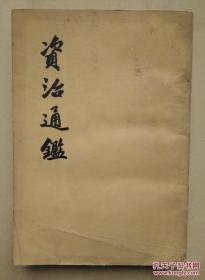 資治通鑑
孔夫子旧书网